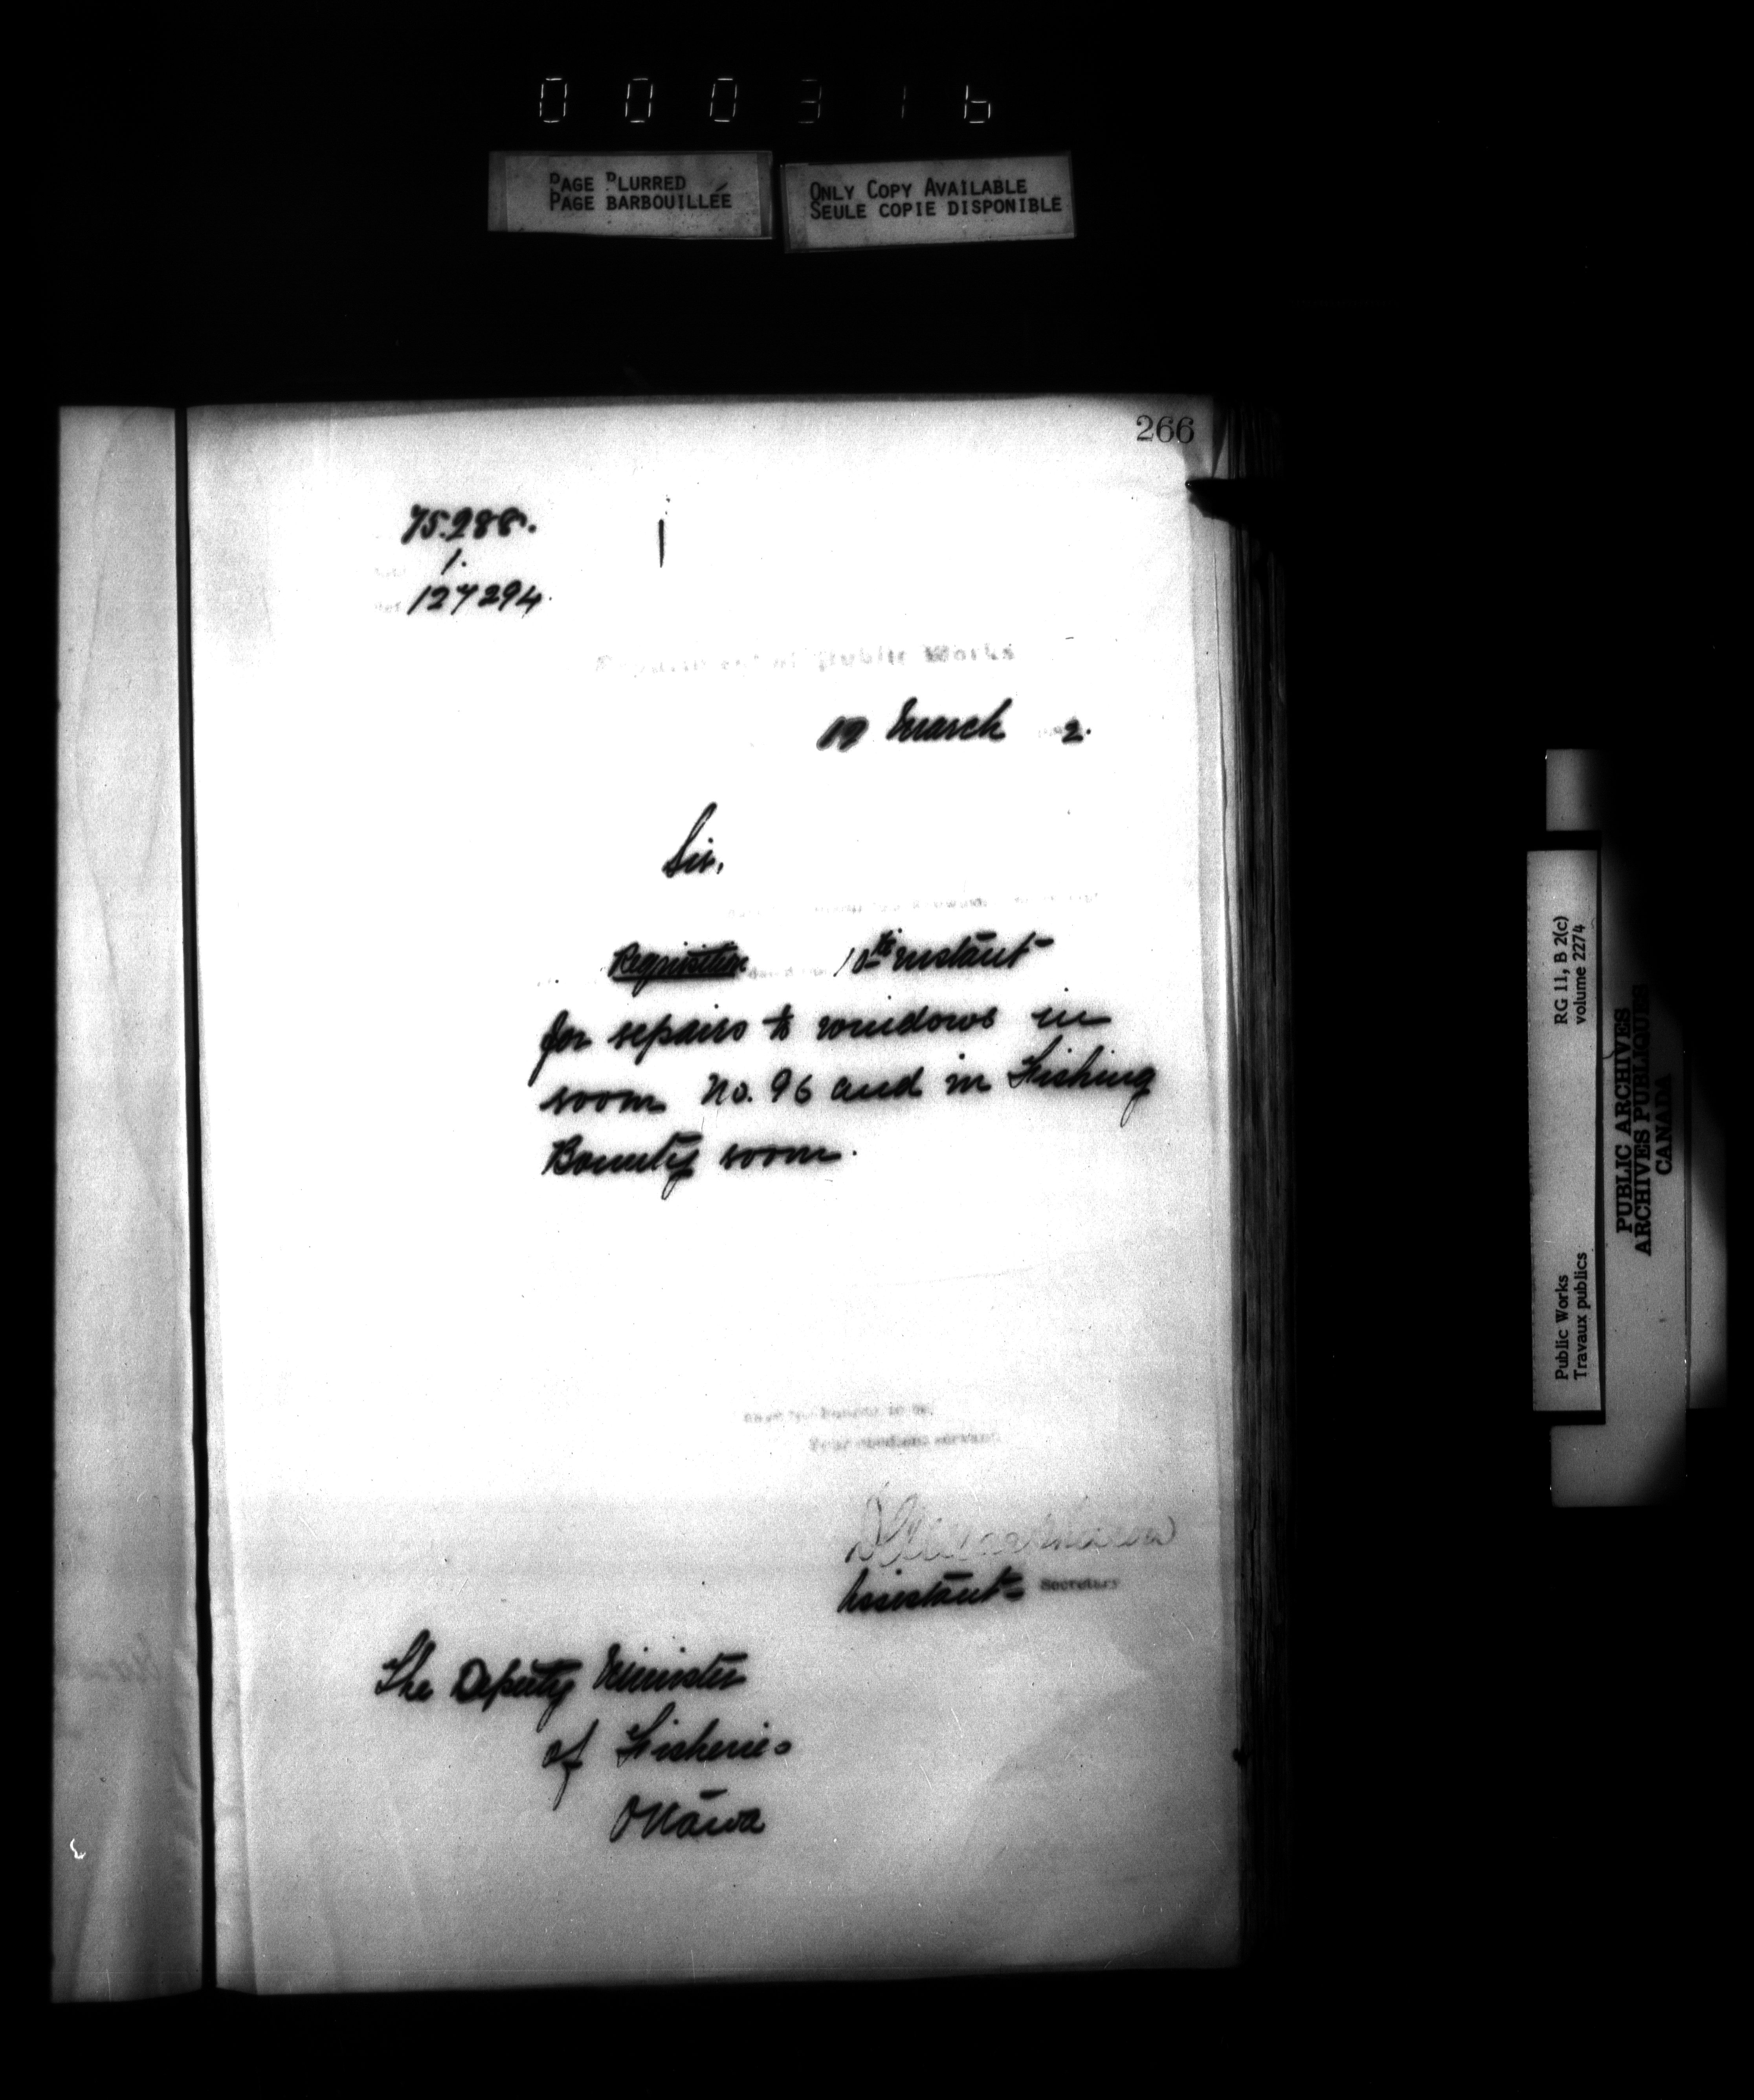 000316
PAGE BLURRED
PAGE BARBOUILLÉE
ONLY COPY AVAILABLE
SEULE COPIE DISPONIBLE
266
75.288.
1.
127294.
Department of Public Works
March 2.
Sir,
Requisition 10th instant
for repairs to windows in
room No. 96 and in Fishing
Bounty room.
have the honour to be,
Your obedient servant,
Assistant Secretary
The Deputy Minister
of Fisheries
Ottawa
RG 11, B 2(c)
volume 2274
Public Works
Travaux publics
PUBLIC ARCHIVES
ARCHIVES PUBLIQUES
CANADA